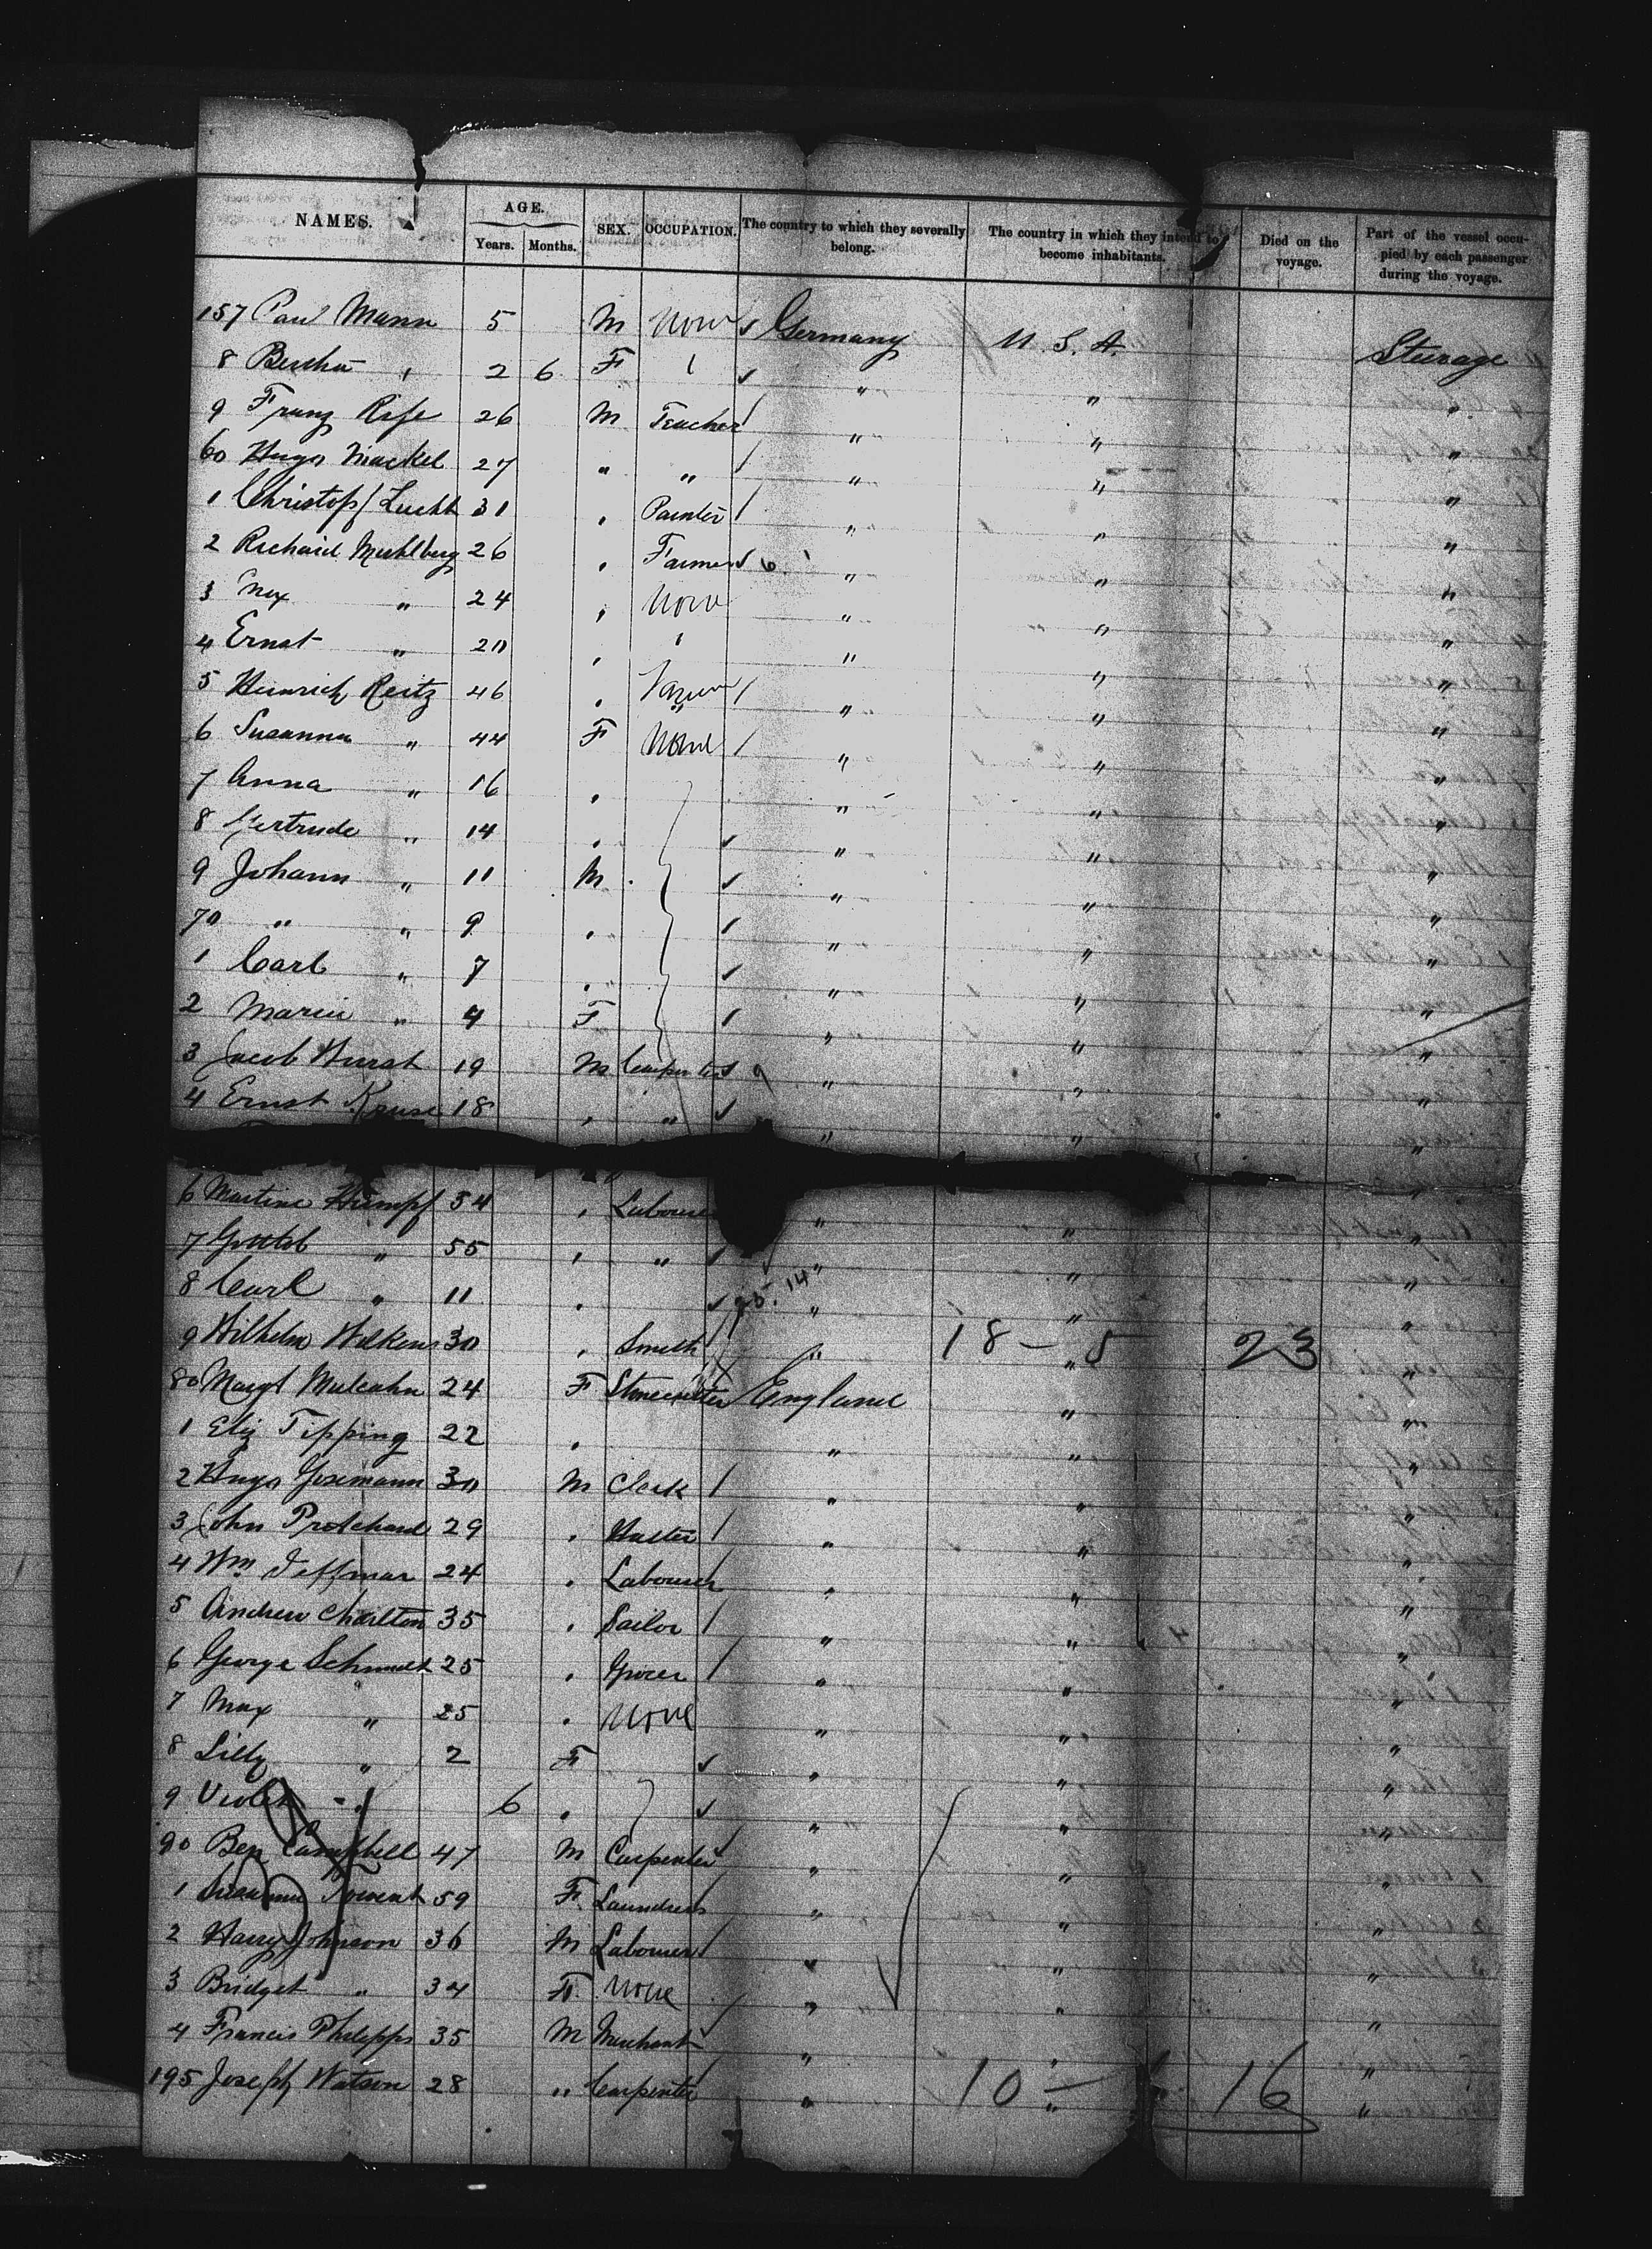 NAMES. AGE. SEX. OCCUPATION. The country to which they severally belong. The country in which they intend to become inhabitants. Died on the voyage. Part of the vessel occupied by each passenger during the voyage.
Years. Months.
157 Paul Mann 5 M None Germany U. S. A. Steerage
8 Bertha " 2 6 F " " " "
9 Franz 26 M Teacher " " "
60 Hugo Mackel 27 " " " " "
1 Christoph Lucht 31 " Painter " " "
2 Richard Muhlberg 26 " Farmer 6 " " "
3 Max " 24 " None " " "
4 Ernst " 20 " " " " "
5 Heinrich Reitz 46 " " " "
6 Susanna " 44 F None " " "
7 Anna " 16 " " " "
8 Gertrude " 14 " " " "
9 Johann " 11 M " " "
70 " " 9 " " " "
1 Carl " 7 " " " "
2 Marie " 4 F " " "
3 Jacob Hurst 19 M Carpenter 9 " " "
4 Ernst Kruse 18 " " " " "
6 Martine Humpf 54 " Labourer " " "
7 Gottleb " 55 " " " " "
8 Carl " 11 " 14 " " "
9 Wilhelm Wilkens 30 " Smith " 18 - 5 " 23 "
80 Margt Mulcahn 24 F Stonecutter England " "
1 Eliz Tipping 22 " " " "
2 Hugo Josemann 30 M Clerk " " "
3 John Protchard 29 " Hatter " " "
4 Wm Jeffmar 24 " Labourer " " "
5 Andrew Charlton 35 " Sailor " " "
6 George Schmidt 25 " Grocer " " "
7 Max " 25 " None " " "
8 Lilly " 2 F " " "
9 Violet " 6 " " " "
90 Ben Campbell 47 M Carpenter " " "
1 Susanna 59 F Laundress " " "
2 Harry Johnson 36 M Labourer " " "
3 Bridget " 34 F None " " "
4 Francis Philipps 35 M Merchant " " "
195 Joseph Watson 28 " Carpenter " 10 - " 16 "